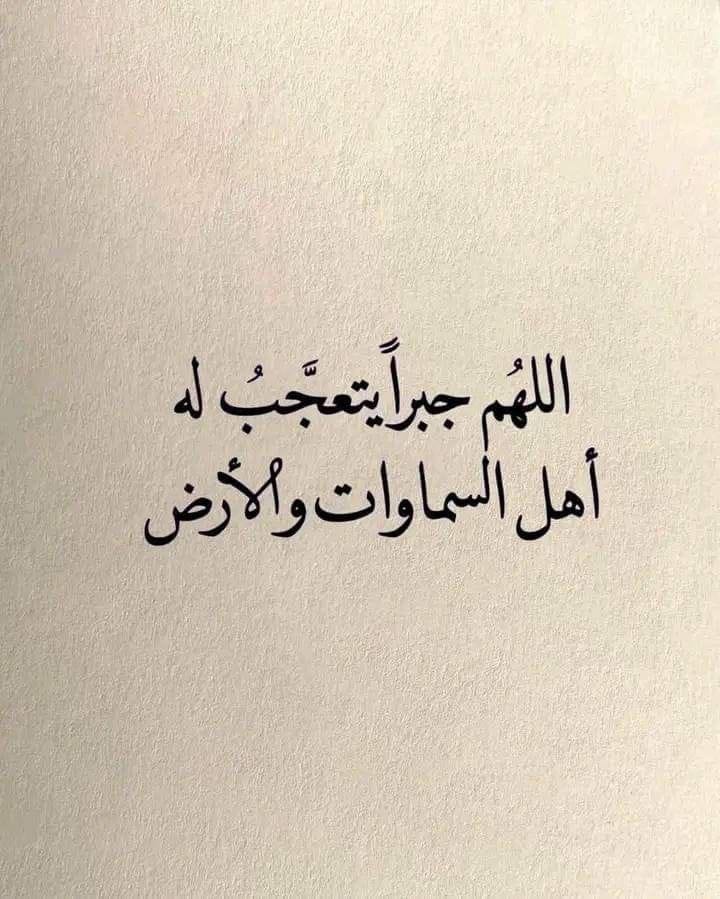 اللهُم جبراً يتعجَّبُ له
أهل السماوات والأرض